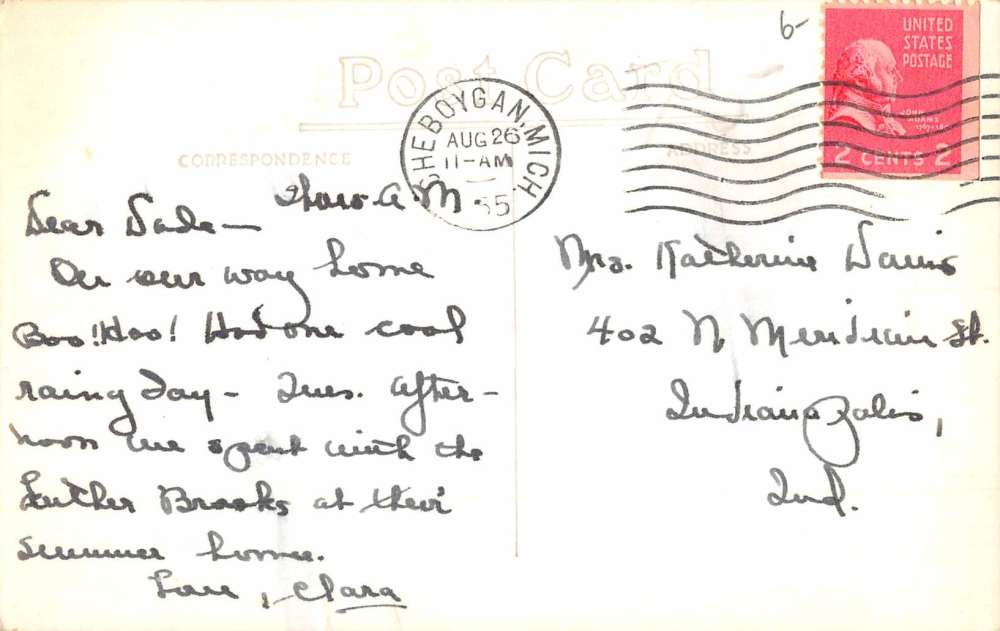 6-
UNITED
STATES
POSTAGE
JOHN
ADAMS
2 CENTS 2
Post Card
CHEBOYGAN, MICH.
AUG 26
11-AM
55
CORRESPONDENCE
ADDRESS
Thurs A.M.
Dear Dade—
On our way home
Boo! Hoo! Had one cool
rainy day- Tues. after-
noon we spent with the
Luther Brooks at their
summer home.
Love, Clara
Mrs. Katherine Davis
402 N Meridian St.
Indianapolis,
Ind.